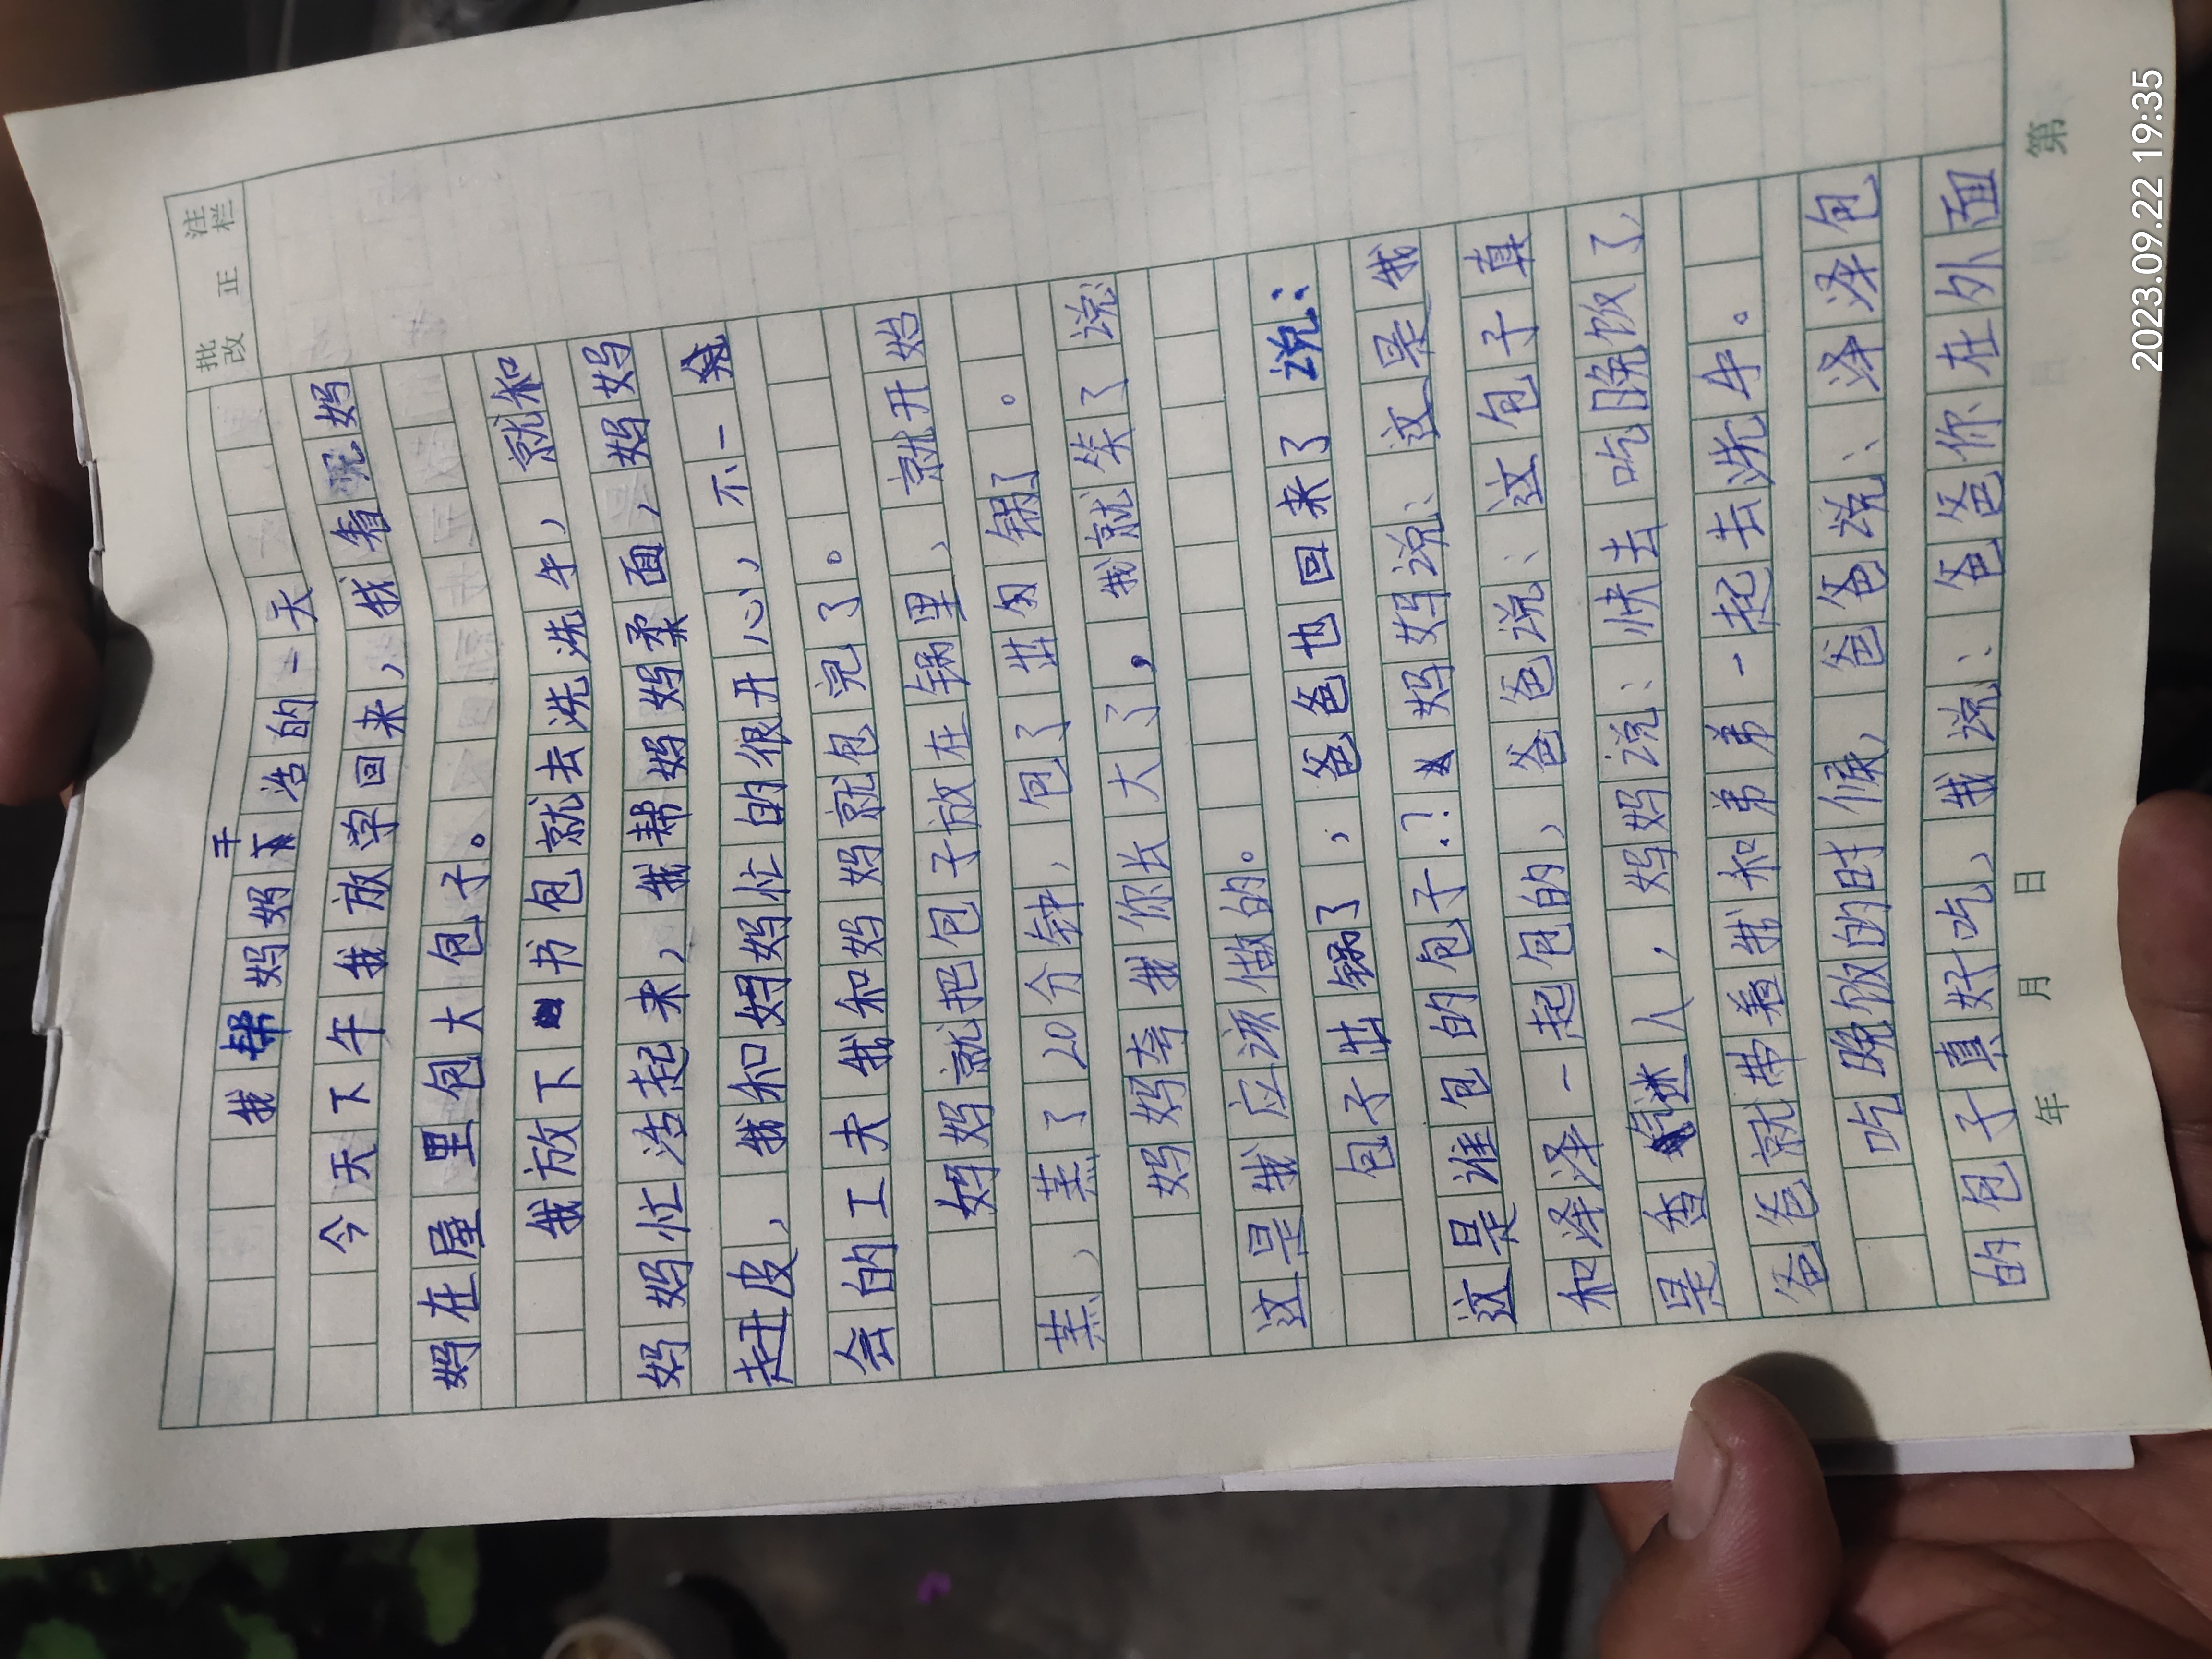 批改
正
注栏
我帮妈妈干活的一天
今天下午我放学回来，我看见妈
妈在屋里包大包子。
我放下书包就去洗洗手，就和
妈妈忙活起来，我帮妈妈柔面，妈妈
赶皮，我和妈妈忙的很开心，不一
会的工夫我和妈妈就包完了。
妈妈就把包子放在锅里，就开始
蒸，蒸了20分钟，包了出匆锅了。
妈妈夸我你长大了，我就笑了说
这是我应该做的。
包子出锅了，爸爸也回来了说：
这是谁包的包子？妈妈说：这是我
和泽泽一起包的，爸爸说：这包子真
是香迷人，妈妈说：快去吃晚饭了，
爸爸就带着我和弟弟一起去洗手。
吃晚饭的时候，爸爸说：泽泽包
的包子真好吃，我说：爸爸你在外面
年 月 日 第
2023.09.22 19:35